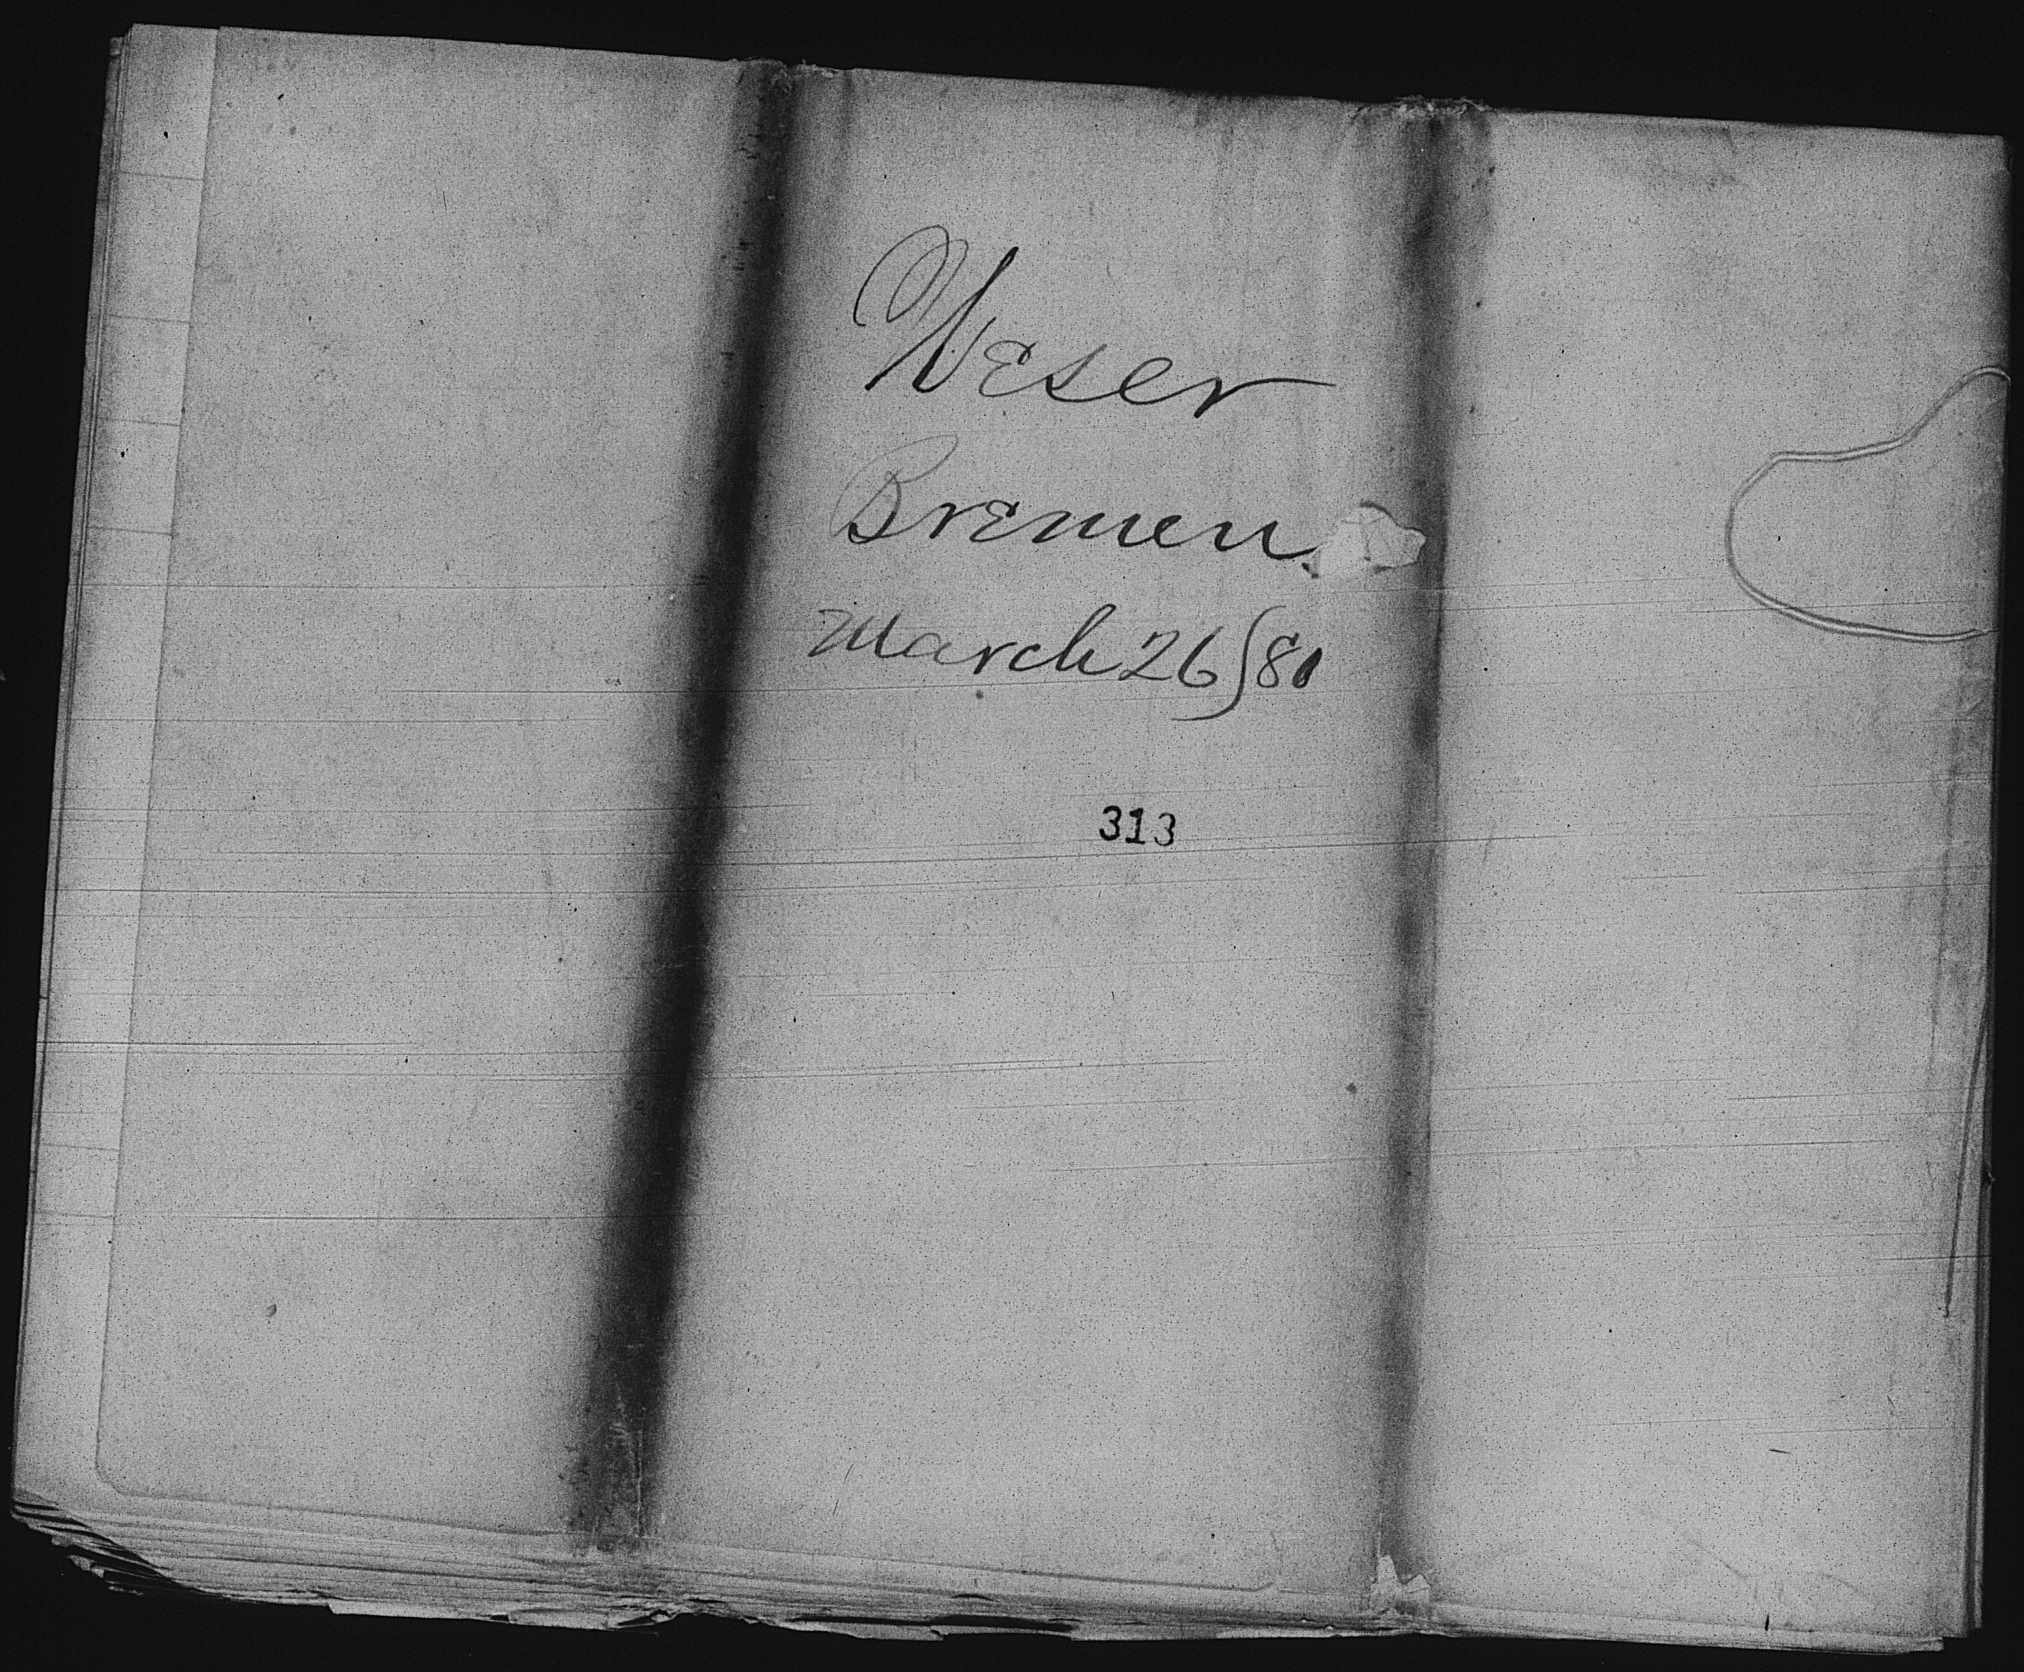 Weser
Bremen.
March 26/81
313